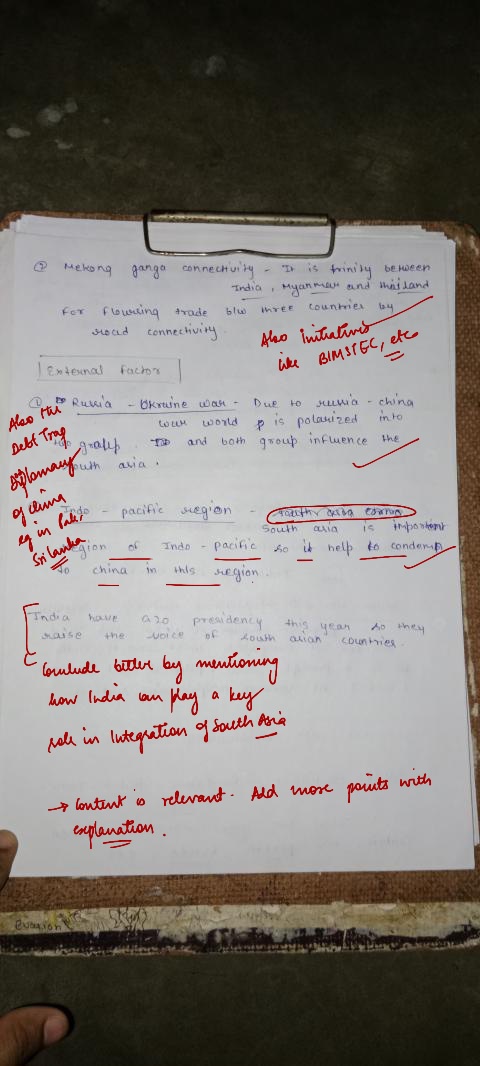 ② Mekong ganga connectivity - It is trinity between
India, Myanmar and thailand
For flowring trade b/w three countries by
road connectivity.
Also initiatives
like BIMSTEC, etc
External factor
① Russia - Ukraine war - Due to russia - china
war world is polarized into
group. and both group influence the
south asia.
Also the
Debt Trap
Diplomacy
of china
eg in Pak,
Sri Lanka.
Indo - pacific region -
South asia is important
region of Indo - pacific so it help to condemn
to china in this region.
India have G20 presidency this year so they
raise the voice of south asian countries.
Conclude better by mentioning
how India can play a key
role in Integration of South Asia
→ Content is relevant. Add more points with
explanation.